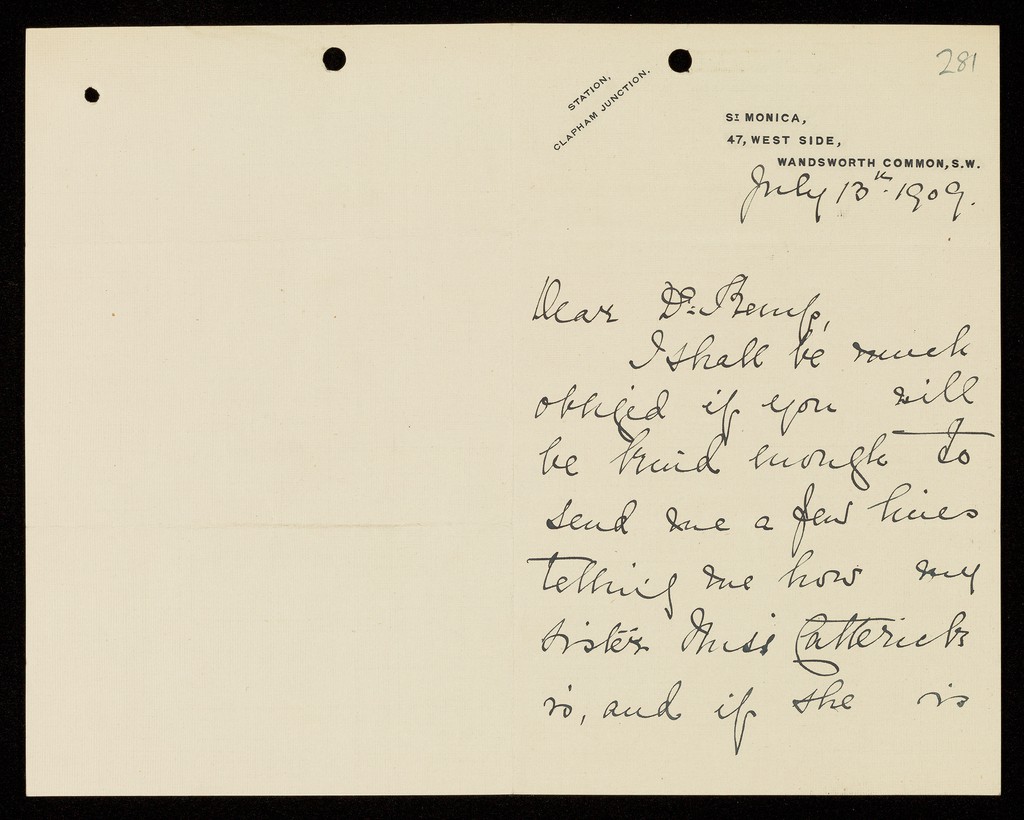 281
STATION,
CLAPHAM JUNCTION.
ST MONICA,
47, WEST SIDE,
WANDSWORTH COMMON, S.W.
July 13th 1909.
Dear Dr. Kemp,
I shall be much
obliged if you will
be kind enough to
send me a few lines
telling me how my
sister Miss Catterick
is, and if she is